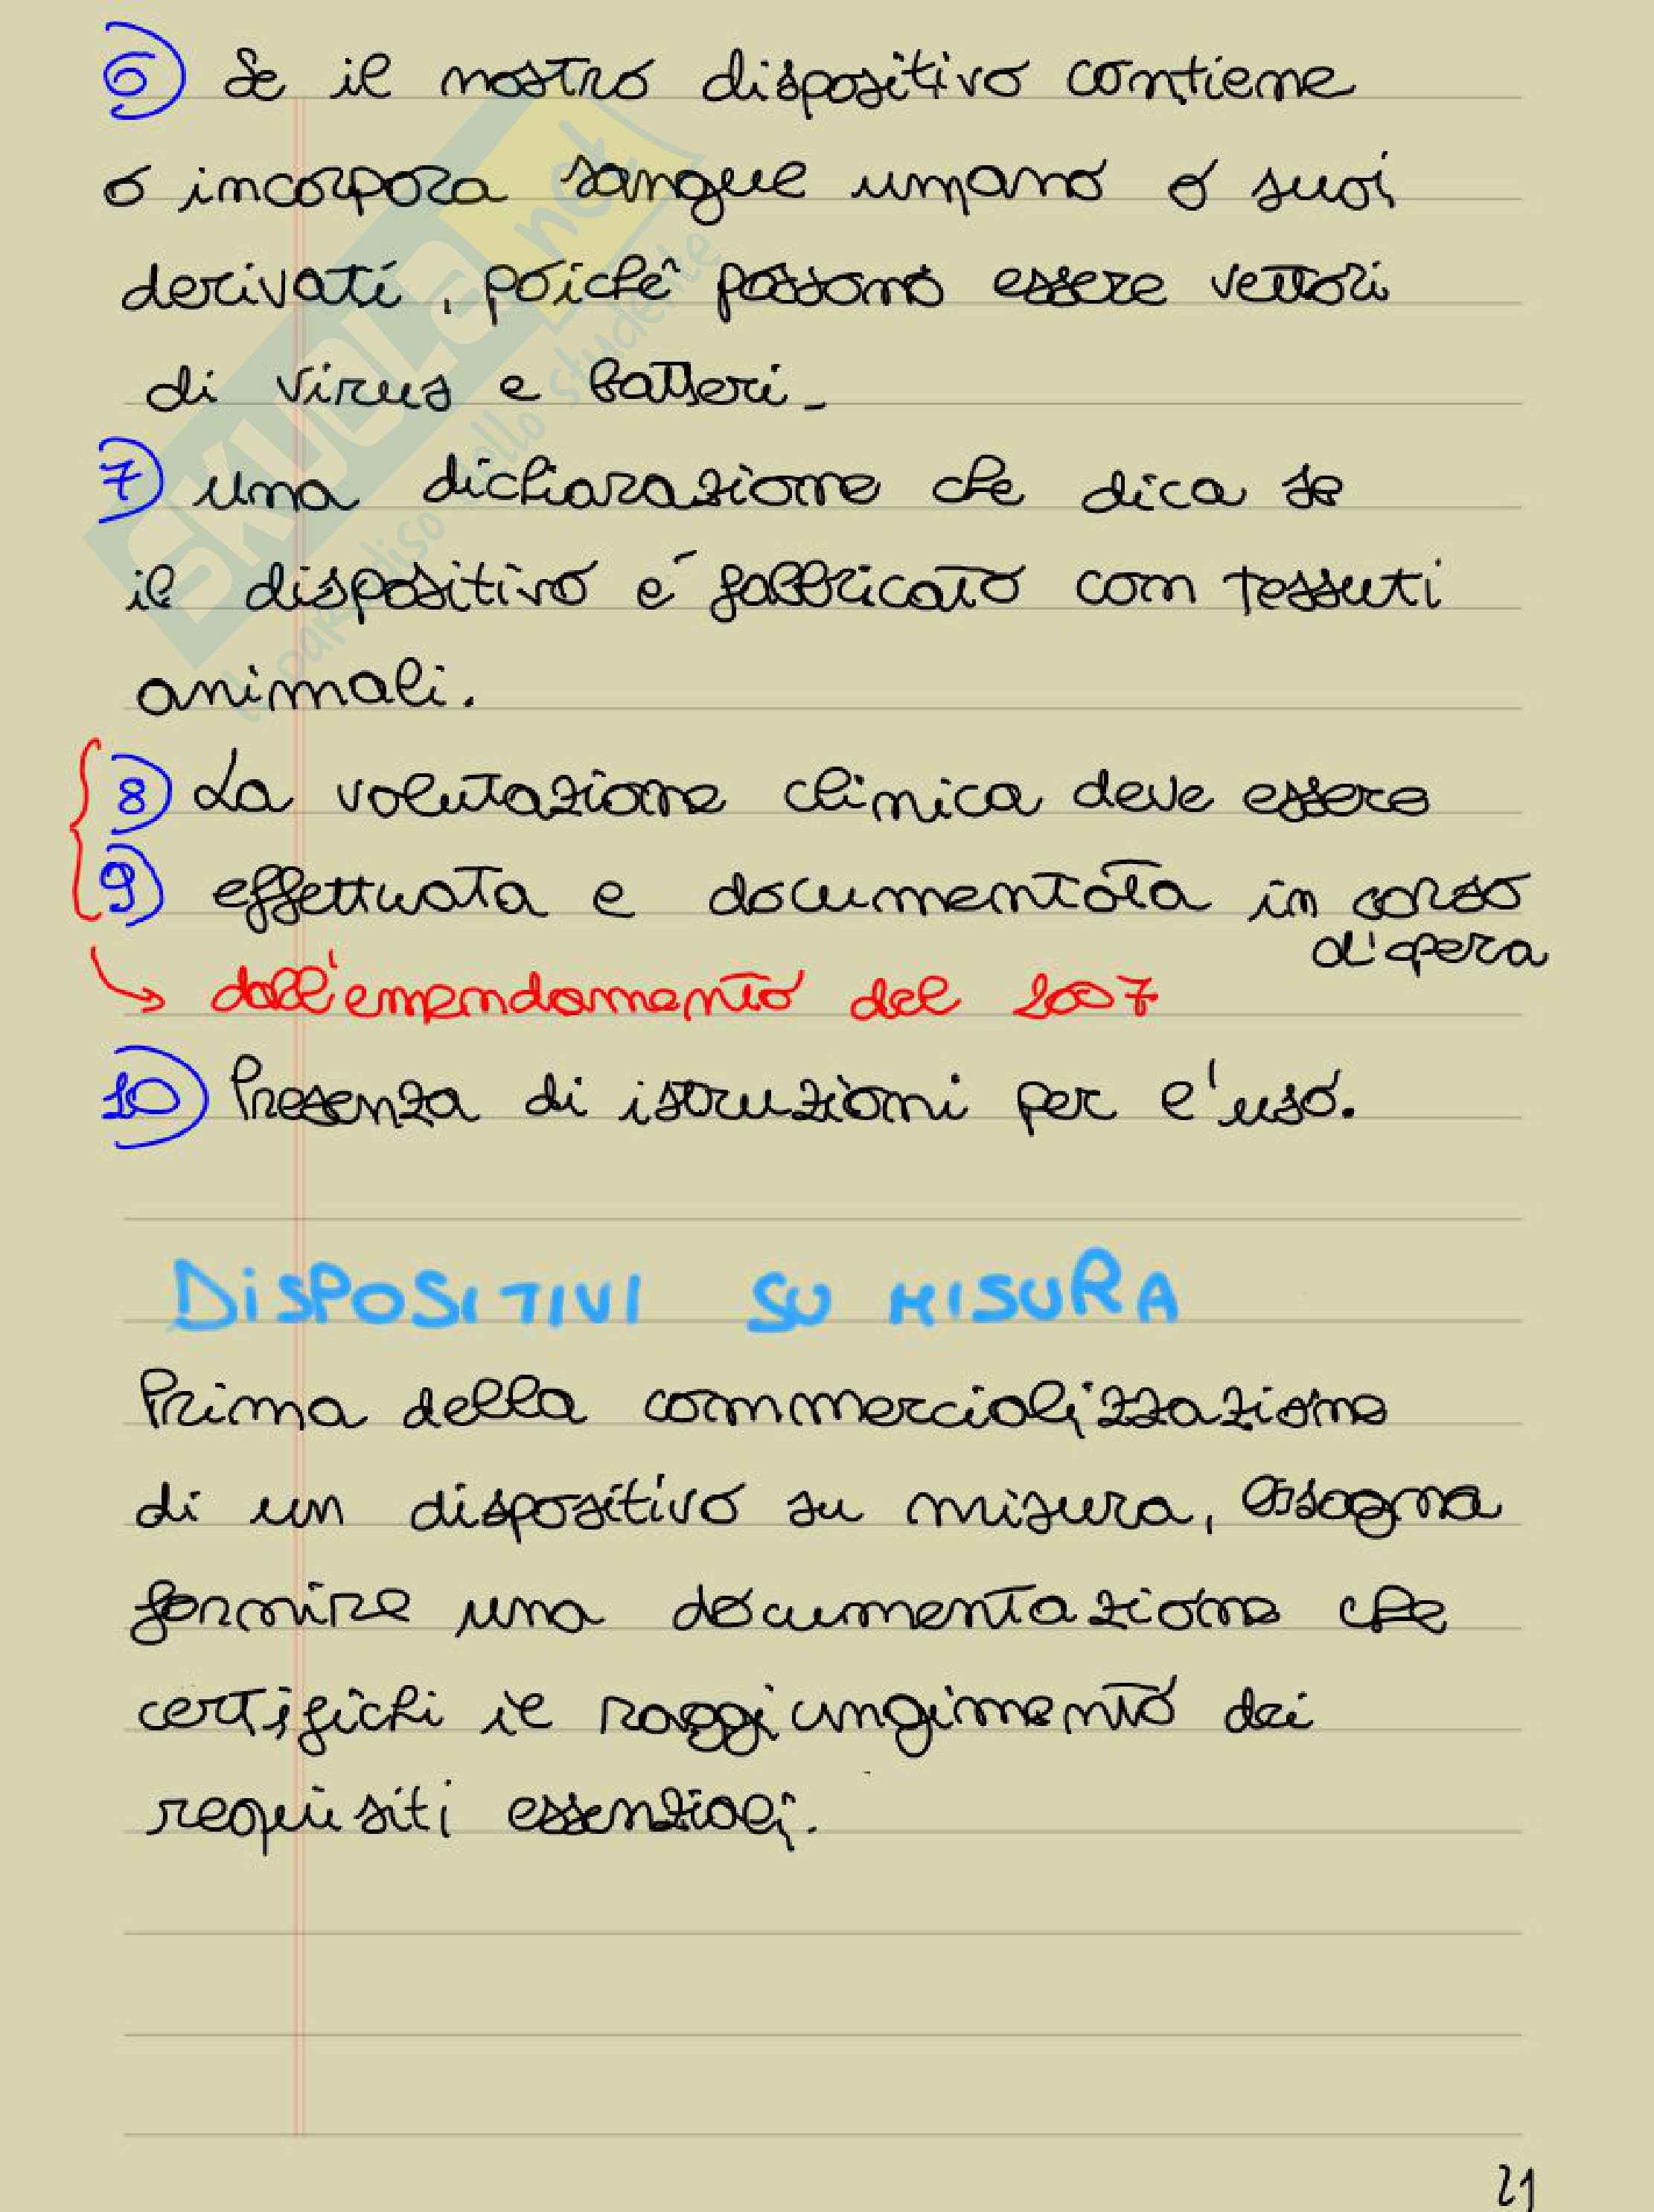 6) Se il nostro dispositivo contiene
o incorpora sangue umano o suoi
derivati, poiché possono essere vettori
di virus e batteri.
7) una dichiarazione che dica se
il dispositivo é fabbricato con tessuti
animali.
8) La valutazione clinica deve essere
9) effettuata e documentata in corso
d'opera
→ dall'emendamento del 2007
10) Presenza di istruzioni per l'uso.
DISPOSITIVI SU MISURA
Prima della commercializzazione
di un dispositivo su misura, bisogna
fornire una documentazione che
certifichi il raggiungimento dei
requisiti essenziali.
21
SKUOLA.net
il paradiso dello studente